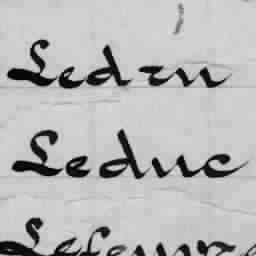 Ledru
Leduc